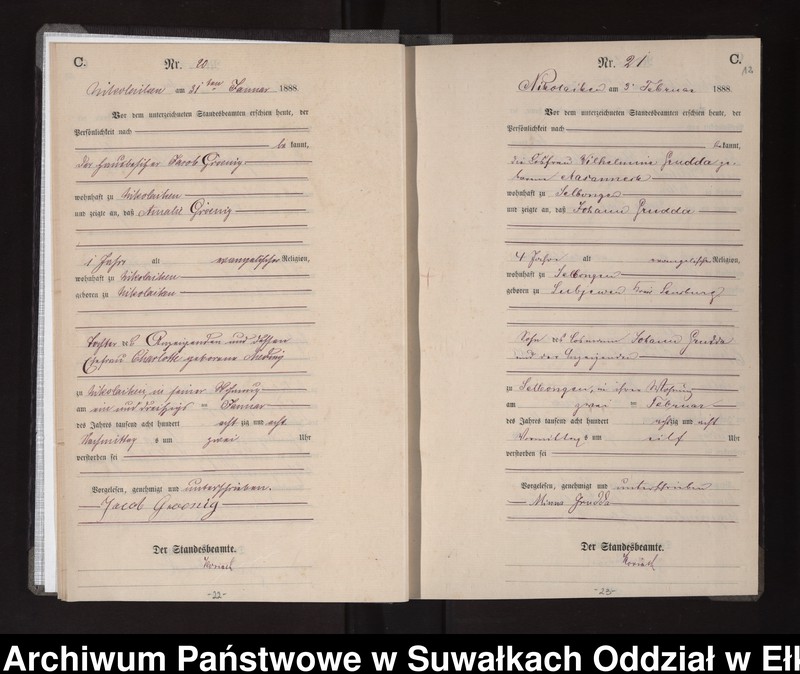 C.
Nr. 20
Nikolaiken am 31 ten Januar 1888.
Vor dem unterzeichneten Standesbeamten erschien heute, der
Persönlichkeit nach
be kannt,
der Hausbesitzer Jacob Groenig
wohnhaft zu Nikolaiken
und zeigte an, daß Amalie Groenig
1 Jahr alt evangelischer Religion,
wohnhaft zu Nikolaiken
geboren zu Nikolaiken
Tochter des Anzeigenden und dessen
Ehefrau Charlotte geborene
zu Nikolaiken, in seiner Wohnung
am ein und dreißigsten Januar
des Jahres tausend acht hundert acht zig und acht
Nachmittag s um zwei Uhr
verstorben sei
Vorgelesen, genehmigt und unterschrieben.
Jacob Groenig
Der Standesbeamte.
-22-
C.
12
Nr. 21
Nikolaiken am 3 Februar 1888.
Vor dem unterzeichneten Standesbeamten erschien heute, der
Persönlichkeit nach
be kannt,
die Losfrau Wilhelmine Grudda ge-
borene
wohnhaft zu Selbongen
und zeigte an, daß Johann Grudda
4 Jahre alt evangelischer Religion,
wohnhaft zu Selbongen
geboren zu Kreis Sensburg
Sohn des Losmann Johann Grudda
und der Anzeigenden
zu Selbongen, in ihrer Wohnung
am zwei Februar
des Jahres tausend acht hundert achtzig und acht
Vormittag s um eilf Uhr
verstorben sei
Vorgelesen, genehmigt und unterschrieben
Minna Grudda
Der Standesbeamte.
-23-
Archiwum Państwowe w Suwałkach Oddział w Ełk